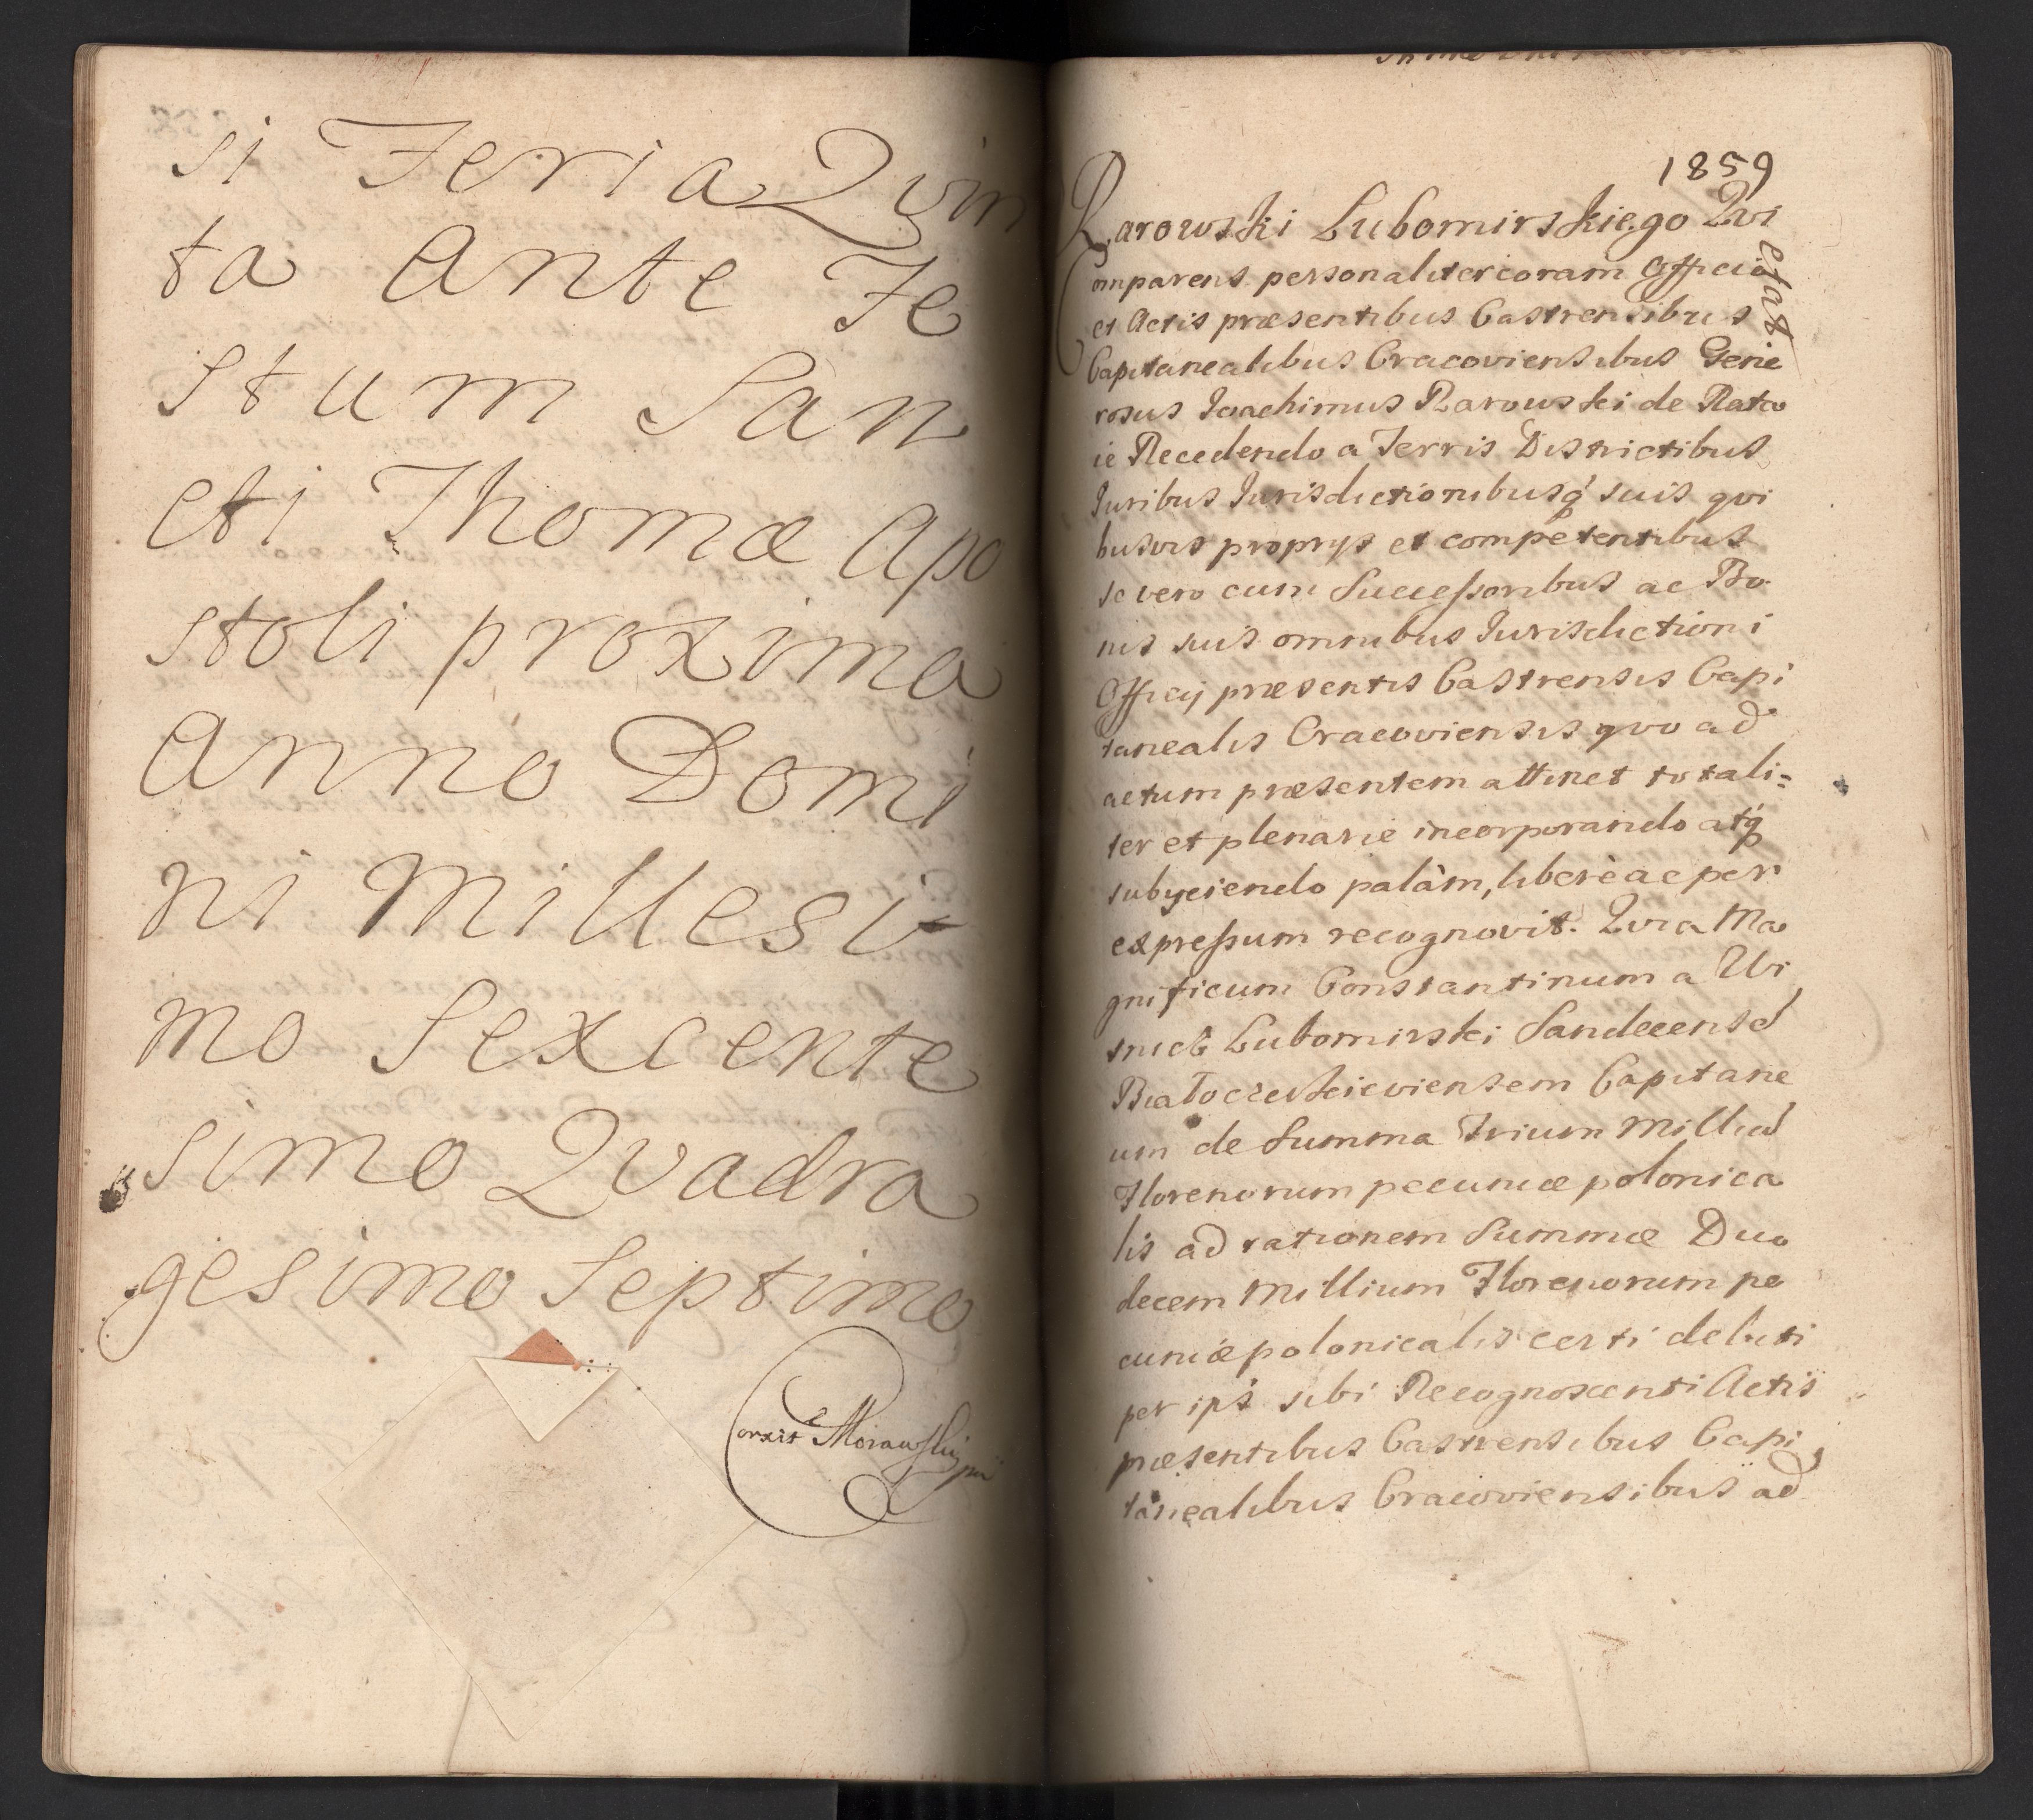 si Feria Qvin
ta Ante Fe
stum San
cti Thomæ Apo
stoli proxima
Anno Domi
ni Millesi
mo Sexcente
simo Qvadra
gesimo Septimo
Corxit Morawskij
1859
Rarowski Lubomirskiego Qvi
etat
Comparens personaliter coram Officio
et Actis præsentibus Castrensibus
Capitanealibus Cracoviensibus Gene
rosus Joachimus Rarowski de Rato
ie Recedendo a Terris Districtibus
Juribus Jurisdictionibusq́ suis qvi
busvis proprys et competentibus
se vero cum Successoribus ac Bo
nis suis omnibus Jurisdictioni
Officij præsentis Castrensis Capi
tanealis Cracoviensis qvo ad
actum præsentem attinet totali=
ter et plenarie incorporando atq́
subyciendo palàm, liberè ac per
expressum recognovit. Qvia Ma
gnificum Constantinum a Wi
snicz Lubomirski Sandecensẽ
Białocerkieviensem Capitane
um de Summa Trium Milliũ
Florenorum pecuniæ polonica
lis ad rationem Summæ Duo
decem Millium Florenorum pe
cuniæ polonicalis certi debiti
per ips̃ sibi Recognoscenti Actis
præsentibus Castrensibus Capi
tanealibus Cracoviensibus ad